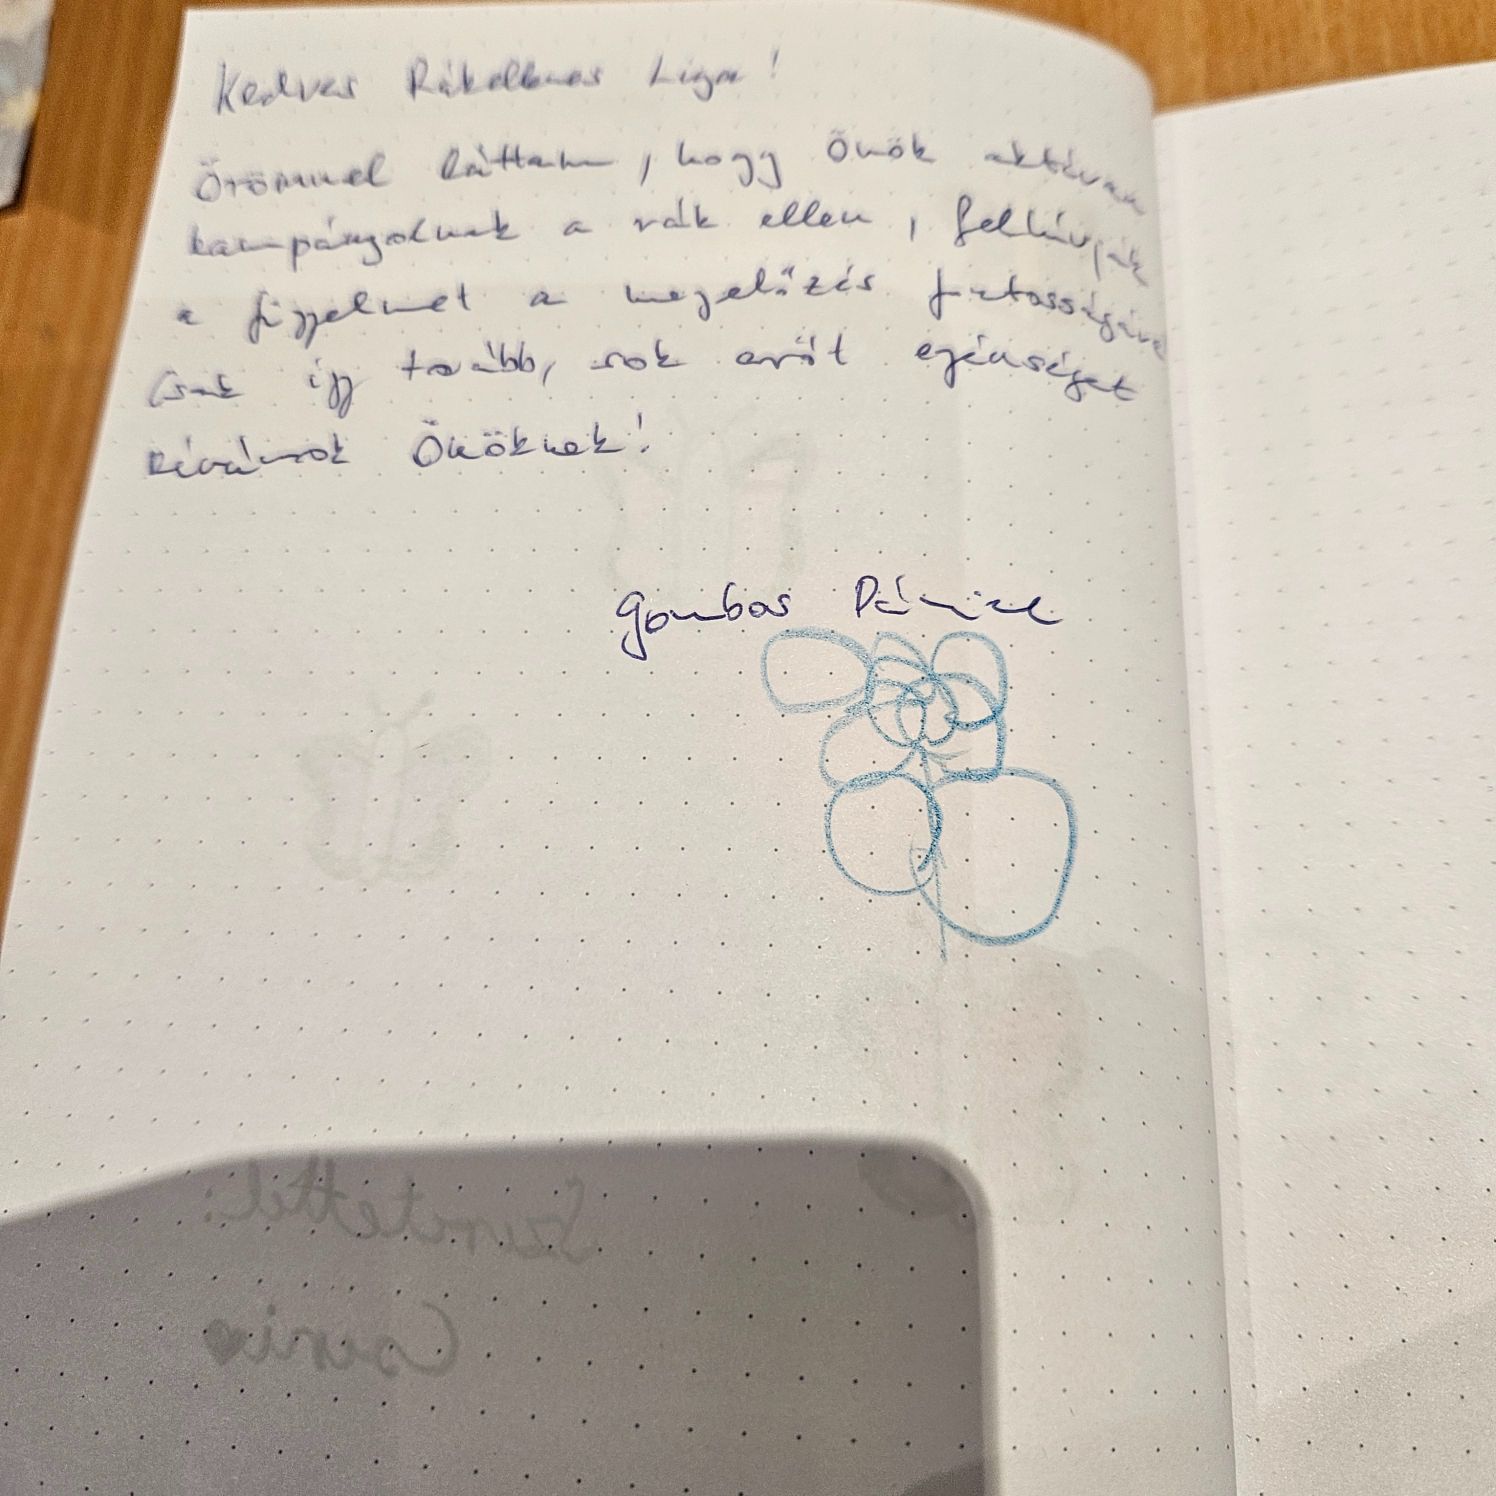 Kedves Rákellenes Liga!
Örömmel láttam, hogy Önök aktívan
kampányolnak a rák ellen, felhívják
a figyelmet a megelőzés fontosságára
Csak így tovább, sok erőt egészséget
kívánok Önöknek!
Gombos Dániel
Szeretettel:
Cseni